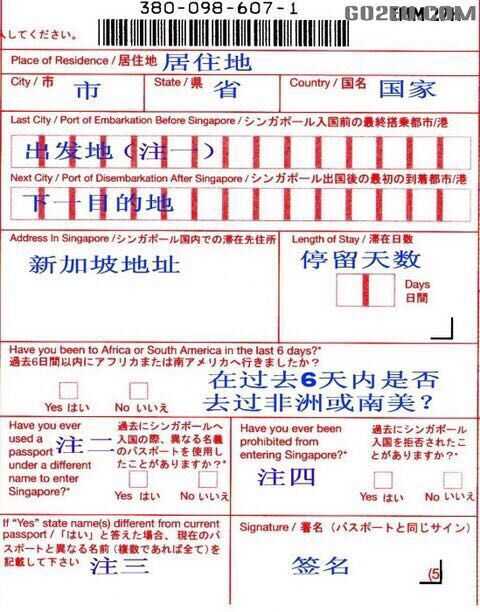 380-098-607-1
GO2EU.COM
入してください。
Place of Residence / 居住地 居住地
City / 市 市 State / 県 省 Country / 国名 国家
Last City / Port of Embarkation Before Singapore / シンガポール入国前の最終搭乗都市/港
出发地(注一)
Next City / Port of Disembarkation After Singapore / シンガポール出国後の最初の到着都市/港
下一目的地
Address In Singapore / シンガポール国内での滞在先住所
新加坡地址
Length of Stay / 滞在日数
停留天数
Days
日間
Have you been to Africa or South America in the last 6 days?*
過去6日間以内にアフリカまたは南アメリカへ行きましたか?
在过去6天内是否
去过非洲或南美?
Yes はい No いいえ
Have you ever
used a
passport
under a different
name to enter
Singapore?*
注二
過去にシンガポールへ
入国の際、異なる名義
のパスポートを使用し
たことがありますか?*
Yes はい No いいえ
Have you ever been
prohibited from
entering Singapore?*
注四
過去にシンガポール
入国を拒否されたこ
とがありますか?*
Yes はい No いいえ
If "Yes" state name(s) different from current
passport / 「はい」と答えた場合、現在のパ
スポートと異なる名前(複数であれば全て)を
記載して下さい 注三
Signature / 署名(パスポートと同じサイン)
签名
(5)